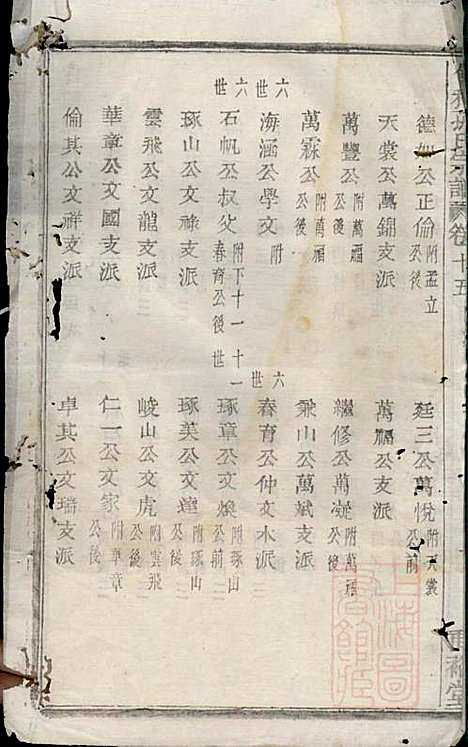 卷十五
德如公正倫附孟立公後
廷三公萬悅附天裳公前
天裳公萬錦支派
萬福公支派
萬豐公附萬福公後
繼修公萬凝附萬福公後
萬霖公附萬福公後
秉山公萬斌支派
六世
海涵公學文附
十一世
六世
春育公仲文水派
六世
石帆公叔父附下十一世春育公後
琢章公文煥附琢山公前
琢山公文祿支派
琢英公文達附琢山公後
雲飛公文龍支派
峻山公文虎附雲飛公後
華章公文國支派
仁一公文家附華章公後
倫其公文祥支派
卓其公文瑞支派
上海圖書館藏